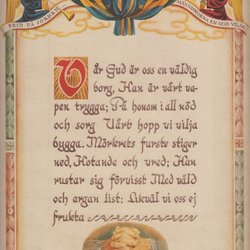 FRID PÅ JORDEN
MÄNNISKORNA EN GOD VILJA
Vår Gud är oss en väldig
borg, Han är vårt va-
pen trygga; På honom i all nöd
och sorg Vårt hopp vi vilja
bygga. Mörkrets furste stiger
ned, Hotande och vred; Han
rustar sig förvisst Med våld
och argan list: Likväl vi oss ej
frukta